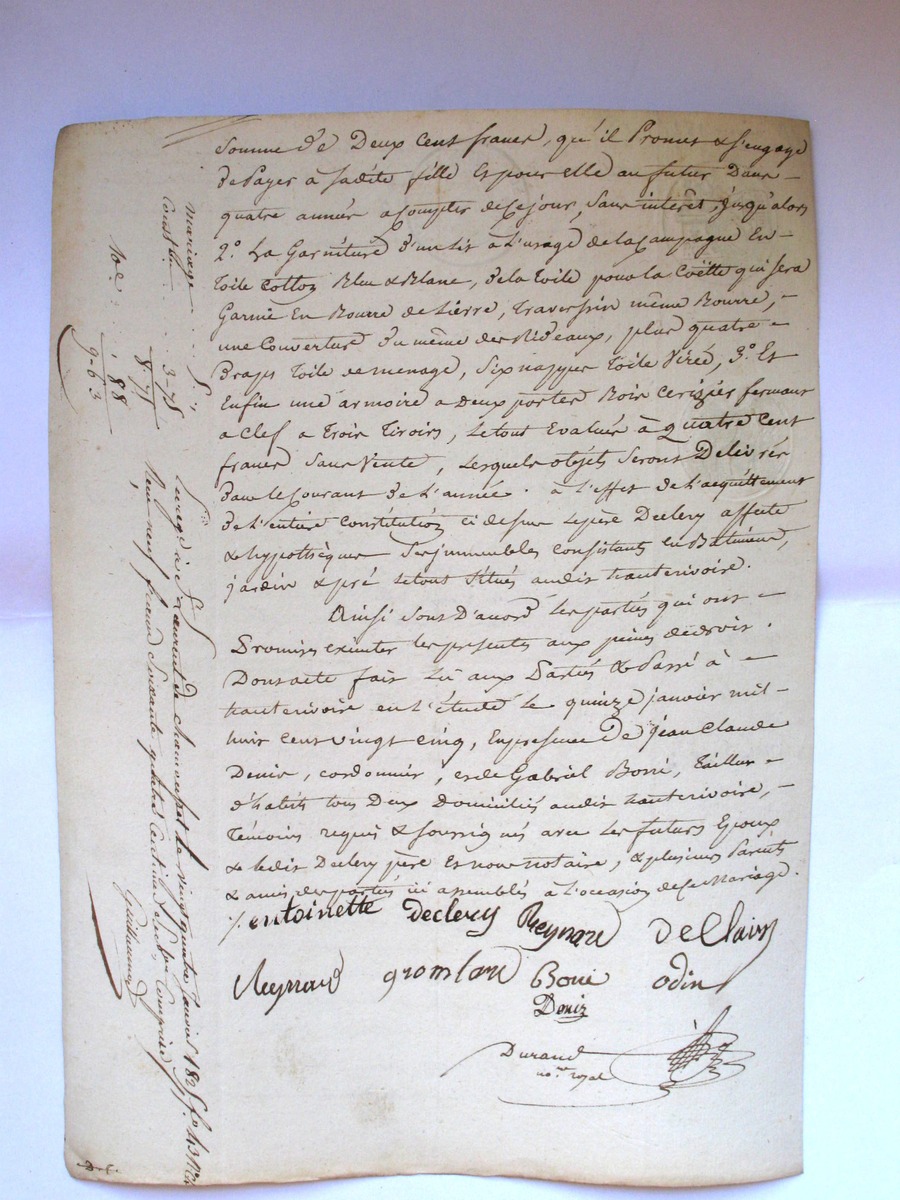 Somme de Deux Cent francs, qu'il Promet & s'engage
de Payer à sadite fille Et pour elle au futur Dans
quatre années a Compter de Ce jour, Sans intérêt jusqu'alors
2.o La Garniture d'un Lit à L'usage de la Campagne En
Toile Cotton Bleu & Blanc, de la toile pour la Coëtte qui sera
Garnie En Bourre de Lierre, Traversin même Bourre,
une Couverture du même des Rideaux, plus quatre
Draps toile de menage, Six nappes toile Virée, 3.o Et
Enfin une armoire a Deux portes Bois Cerizier fermant
a Clef a Trois Tiroirs, Le tout Evalué à quatre Cent
francs Sans Vente, Lesquels objets Seront Délivrés
dans le Courant de L'année. à L'effet de L'acquittement
de L'entière Constitution ci dessus Le père Declery affecte
& hypothèque Ses immeubles Consistant en Batiment,
jardin & pré Le tout Situés audit hauterivoire.
Ainsi Sont D'accord Les parties qui ont
Promis exécuter les presentes aux peines de droit.
Dont acte fait Lu aux Parties & Passé à
hauterivoire en L'étude Le quinze janvier mil
huit Cent vingt Cinq, En presence de jean Claude
Deniz, cordonnier, et de Gabriel Borri, Tailleur
d'habits tous Deux Domiciliés audit hauterivoire,
Témoins requis & Soussignés avec Les futurs Epoux
& Ledit Declery père Et nous notaire, & plusieurs Parents
& amis des parties ici assemblés à L'occasion de Ce Mariage.
antoinette declery Reynard de Clairy
Reynard gromlard Borri odin
Deniz
Durand
no.re royal
Mariage 5,
Const.on 3-75
8-75
10.e .88
9-63
Enreg.é à S.t Laurent de chamousset le vingt quatre Janvier 1825 f.o 43 R.o
Reçu neuf francs Soixante quatre Centimes décime Compris
Guillaume
D. C.